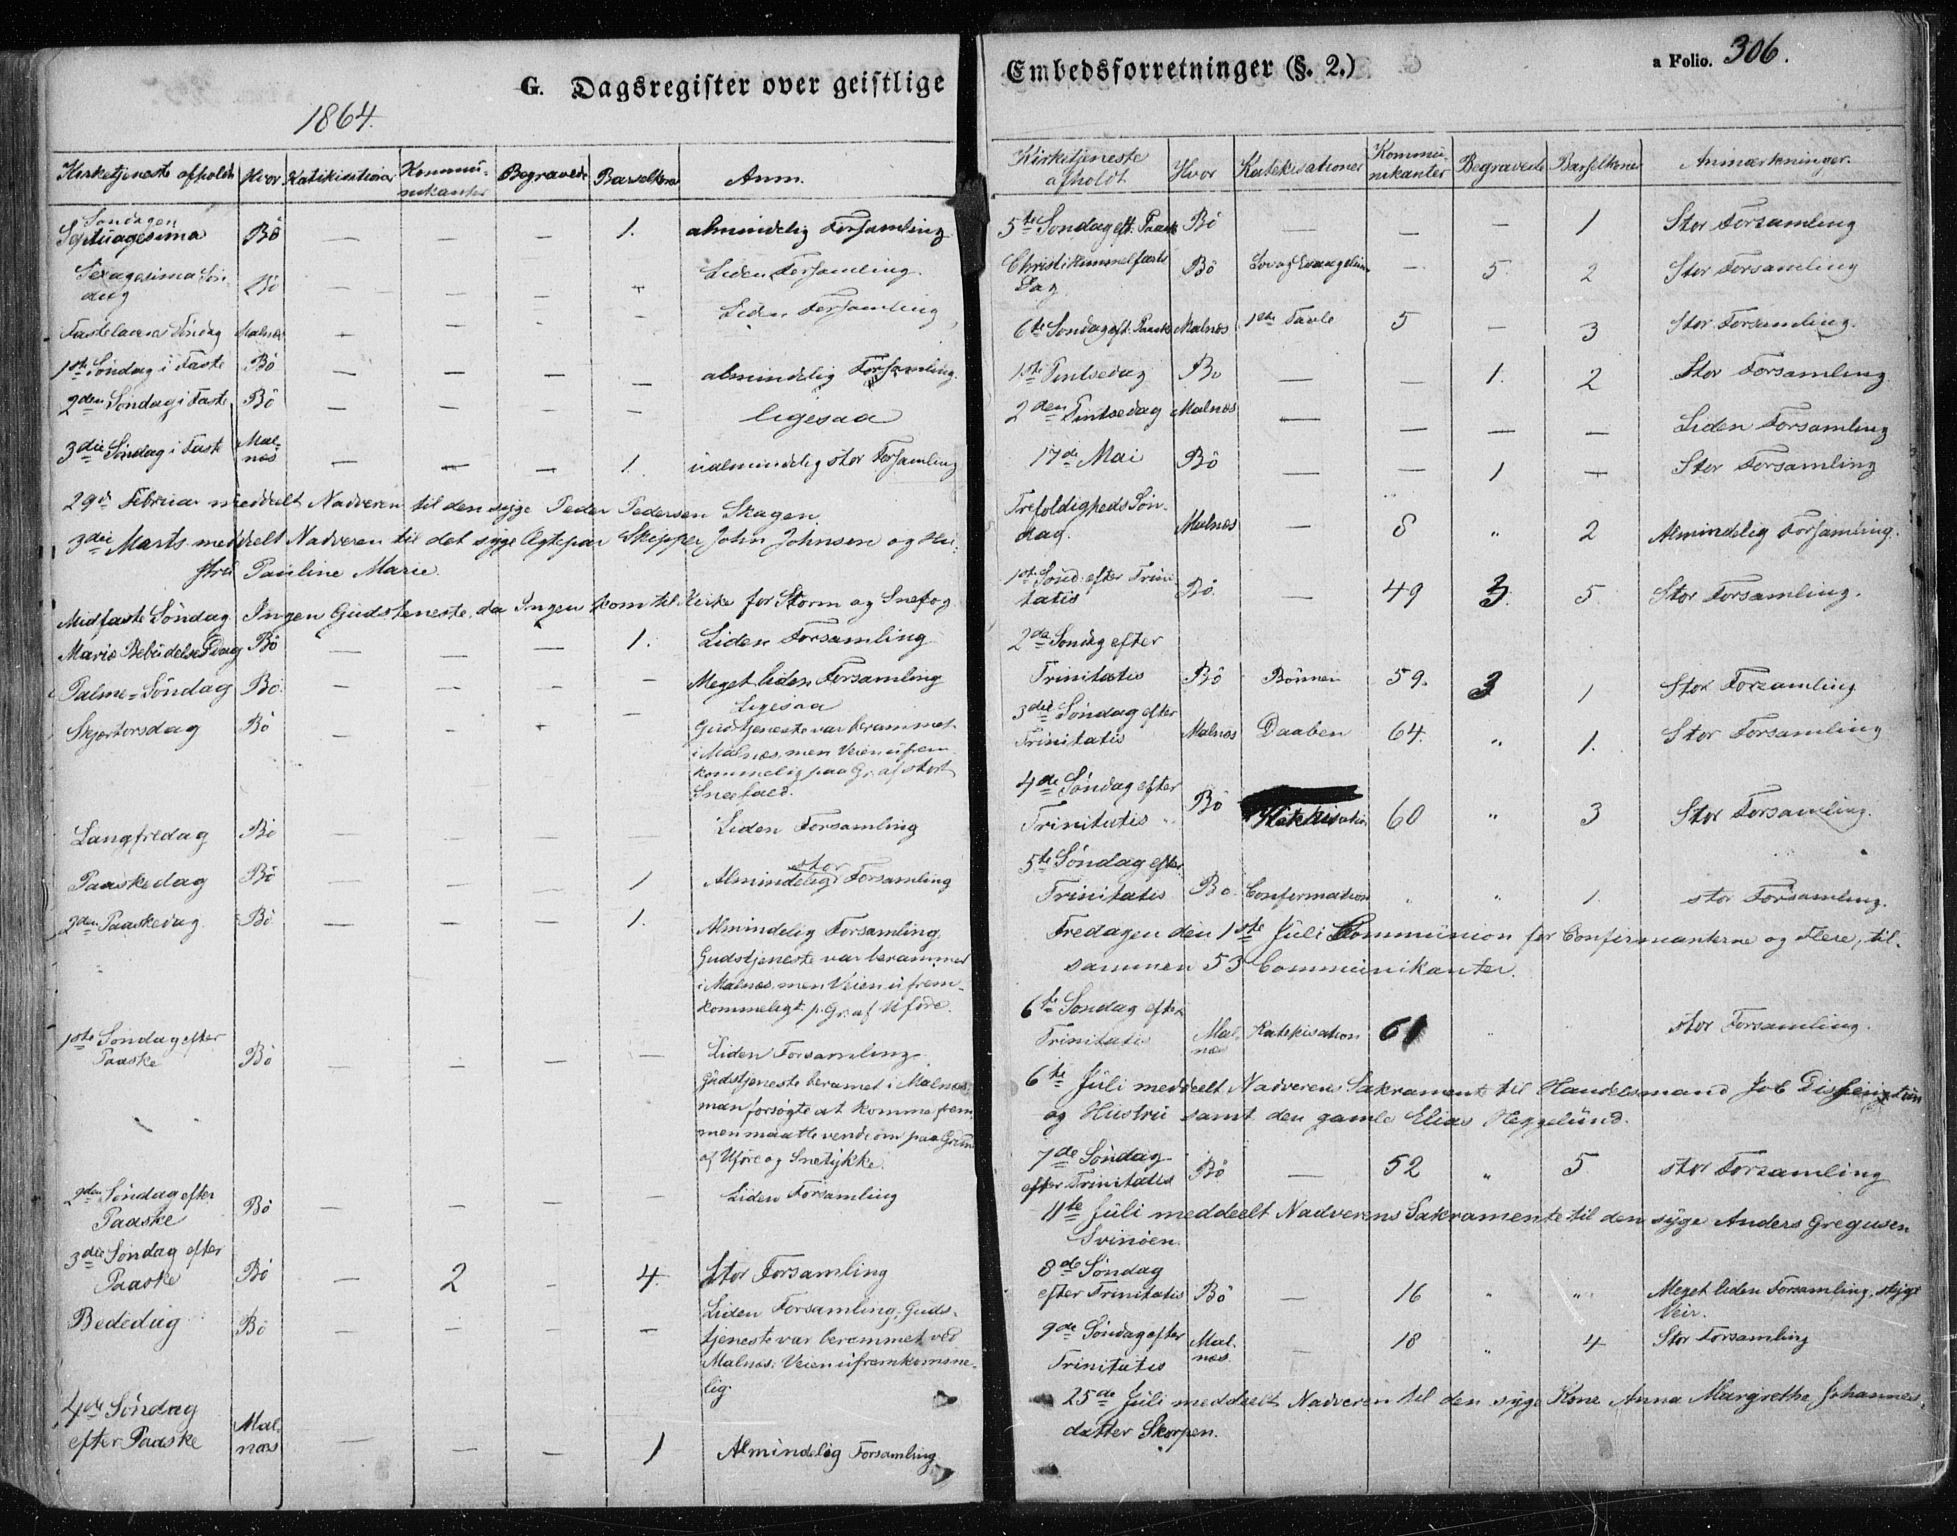 G. Dagsregister over geistlige
1864.
Kirketjeneste afholdt Hvor Katekisationer Kommunikanter Begravede Barselkoner Anm.
Søndagen
Septuagesima Bö — — — 1. almindelig Forsamling
Sexagesima Søn-
dag Bö — — — — Liden Forsamling.
Fastelavens Søndag Malnæs — — — — Liden Forsamling
1ste Søndag i Faste Bö — — — — almindelig Forsamling.
2den Søndag i Faste Bö — — — — ligesaa
3die Søndag i Faste Mal-
næs — — — 1. ualmindelig stor Forsamling
29de Februar meddelt Nadveren til den syge Peder Pedersen Skagen.
3die Marts meddelt Nadveren til det syge Ægtepar Skipper John Johnsen og Hu-
stru Pauline Marie.
Midfaste Søndag Ingen Gudstjeneste, da Ingen kom til Kirke for Storm og Snefog.
Mariæ Bebudelses Dag Bö — — — 1. Liden Forsamling
Palme-Søndag Bö. — — — — Meget liden Forsamling
Skjærtorsdag Bö — — — — Ligesaa
Gudstjeneste var berammet
i Malnæs, men Veien ufrem-
kommelig paa Gr. af stort
Sneefald.
Langfredag Bö — — — — Liden Forsamling
Paaskedag Bö — — — 1 Almindelig stor Forsamling
2den Paaskedag Bö — — — 1. Almindelig Forsamling
Gudstjeneste var berammed
i Malnæs, men Veien ufrem-
kommeligt p. Gr. af Uføre.
1ste Søndag efter
Paaske Bö — — — — Liden Forsamling
Gudstjeneste beramet i Malnæs;
man forsøgte at komme frem
men maatte vende om paa Grund
af Uføre og Snetykke.
2den Søndag efter
Paaske Bö — — — — Liden Forsamling
3die Søndag efter
Paaske Bö — 2 — 4. Stor Forsamling
Bededag Bö — — — — Liden Forsamling; Guds-
tjeneste var berammet ved
Malnæs; Veien ufremkomme-
lig.
4de Søndag
efter Paaske Mal-
næs — — — 1 Almindelig Forsamling
Embedsforretninger (§. 2.) a Folio. 306.
Kirketjeneste
afholdt Hvor Katekisationer Kommu-
nikanter Begravede Barselkoner Anmærkninger.
5te Søndag eft. Paaske Bö — — — 1 Stor Forsamling
Christi Himmelfarts
Dag Bö Lov og Evangelium — 5. 2 Stor Forsamling
6te Søndag eft. Paaske Malnæs 1ste Tavle 5 — 3 Stor Forsamling.
1ste Pintsedag Bö — — 1. 2 Stor Forsamling
2den Pintsedag Malnæs — — — — Liden Forsamling
17de Mai Bö — — 1 — Stor Forsamling
Trefoldigheds Søn-
dag. Malnæs — 8 " 2 Almindelig Forsamling.
1ste Sønd. efter Trini-
tatis Bö. — 49 3. 5. Stor Forsamling.
2den Søndag efter
Trinitatis Bö Bönnen 59. 3 1 Stor Forsamling
3die Søndag efter
Trinitatis Malnæs Daaben 64. " 1. Stor Forsamling
4de Søndag efter
Trinitatis Bö Katekisation 60 " 3 Stor Forsamling.
5te Søndag efter
Trinitatis Bö Confirmation " " 1. stor Forsamling.
Fredagen den 1ste Juli Communion for Confirmanterne og Flere, til-
sammen 53 Communikanter.
6te Søndag efter
Trinitatis Mal-
næs Katekisation 61 " " stor Forsamling.
6te Juli meddelt Nadverens Sakramente til Handelsmand Job
og Hustru samt den gamle Elias Heggelund.
7de Søndag
efter Trinitatis Bö — 52 " 5 stor Forsamling
11te Juli meddeelt Nadverens Sakramente til den syge Anders Gregusen
Svinöen.
8de Søndag
efter Trinitatis Bö — 16 " " Meget liden Forsamling, stygt
Veir.
9de Søndag efter
Trinitatis Mal-
næs. — 18 " 4 Stor Forsamling
25de Juli meddeelt Nadveren til den syge Kone Anna Margrethe Johannes-
datter Skorpen.